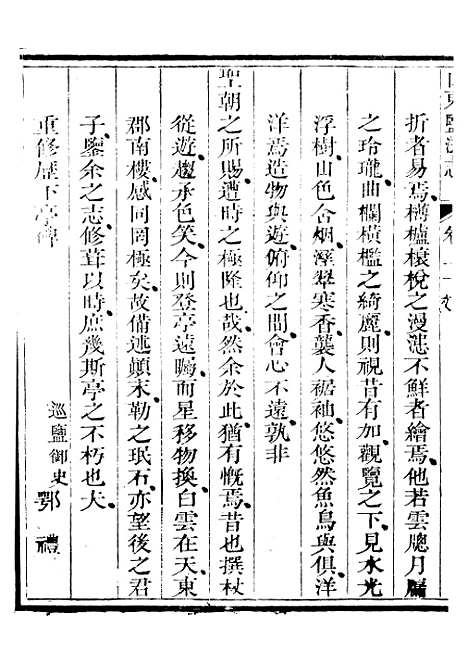 山東鹽法志 卷十二
折者易焉樽櫨榱桷之漫漶不鮮者繪焉他若雲牕月牖
之玲瓏曲欄橫檻之綺麗則視昔有加觀覽之下見水光
浮樹山色含烟濕翠寒香襲人裾袖悠悠然魚鳥與俱洋
洋焉造物與遊俯仰之間會心不遠孰非
聖朝之所賜遭時之極隆也哉然余於此猶有慨焉昔也撰杖
從遊趨承色笑今則登亭遠矚而星移物換白雲在天東
郡南樓感同罔極矣故備述顛末勒之珉石亦望後之君
子鑒余之志修葺以時庶幾斯亭之不朽也夫
巡鹽御史鄂禮
重修歷下亭碑